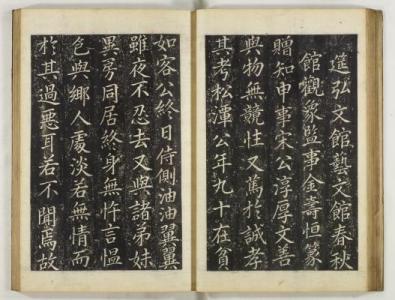 筵弘文館藝文館春秋
館觀象監事金壽恒篆
贈知申事宋公淳厚文吾
與物無競性又篤於誠孝
其考松潭公年九十在負
如容公終日侍側油油翼翼
雖夜不忍去又與諸弟妹
異房同居終身無忤言慍
色與鄉人處淡若無情而
於其過惡耳若不聞焉故